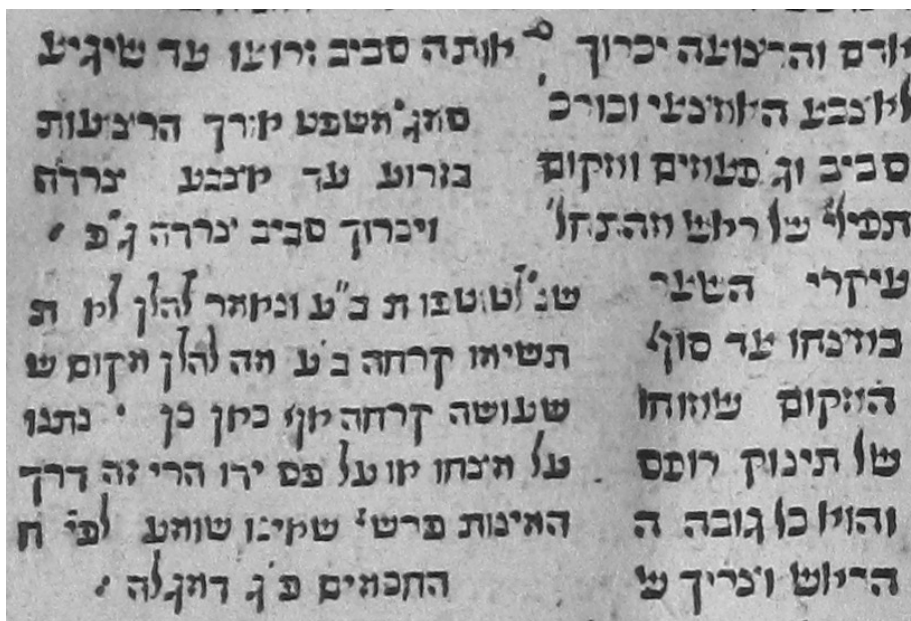 אדם והרצועה יכרוך אותה סביב זרועו עד שיגיע
לאצבע האמצעי וכורכ'
סביב וג פעמים ומקום
תפילי' של ראש מהתחל'
עיקרי השער
במצחו עד סוף
המקום שמוחו
של תינוק רופס
והוא כל גובה ה
הראש וצריך ש
סמג משפט אורך הרצועות
בזרוע עד אצבע צרדה
ויכרוך סביב צרדה ג"פ ·
שנ' לטוטפות ב"ע ונאמר להלן לא ת
תשימו קרחה ב'ע מה להלן מקום ש
שעושה קרחה אף כאן כן · נתנו
על מצחו או על פס ידו הרי זה דרך
המינות פרש' שאינו שומע לפי' ח
החכמים פ'ג דמגלה ·